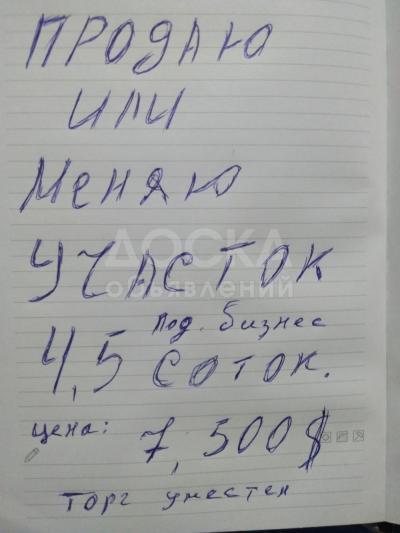 ПРОДАЮ
ИЛИ
Меняю
УЧАСТОК
ДОСКА
объявлений
Под. бизнес
4,5 соток.
цена: 7,500$
торг уместен